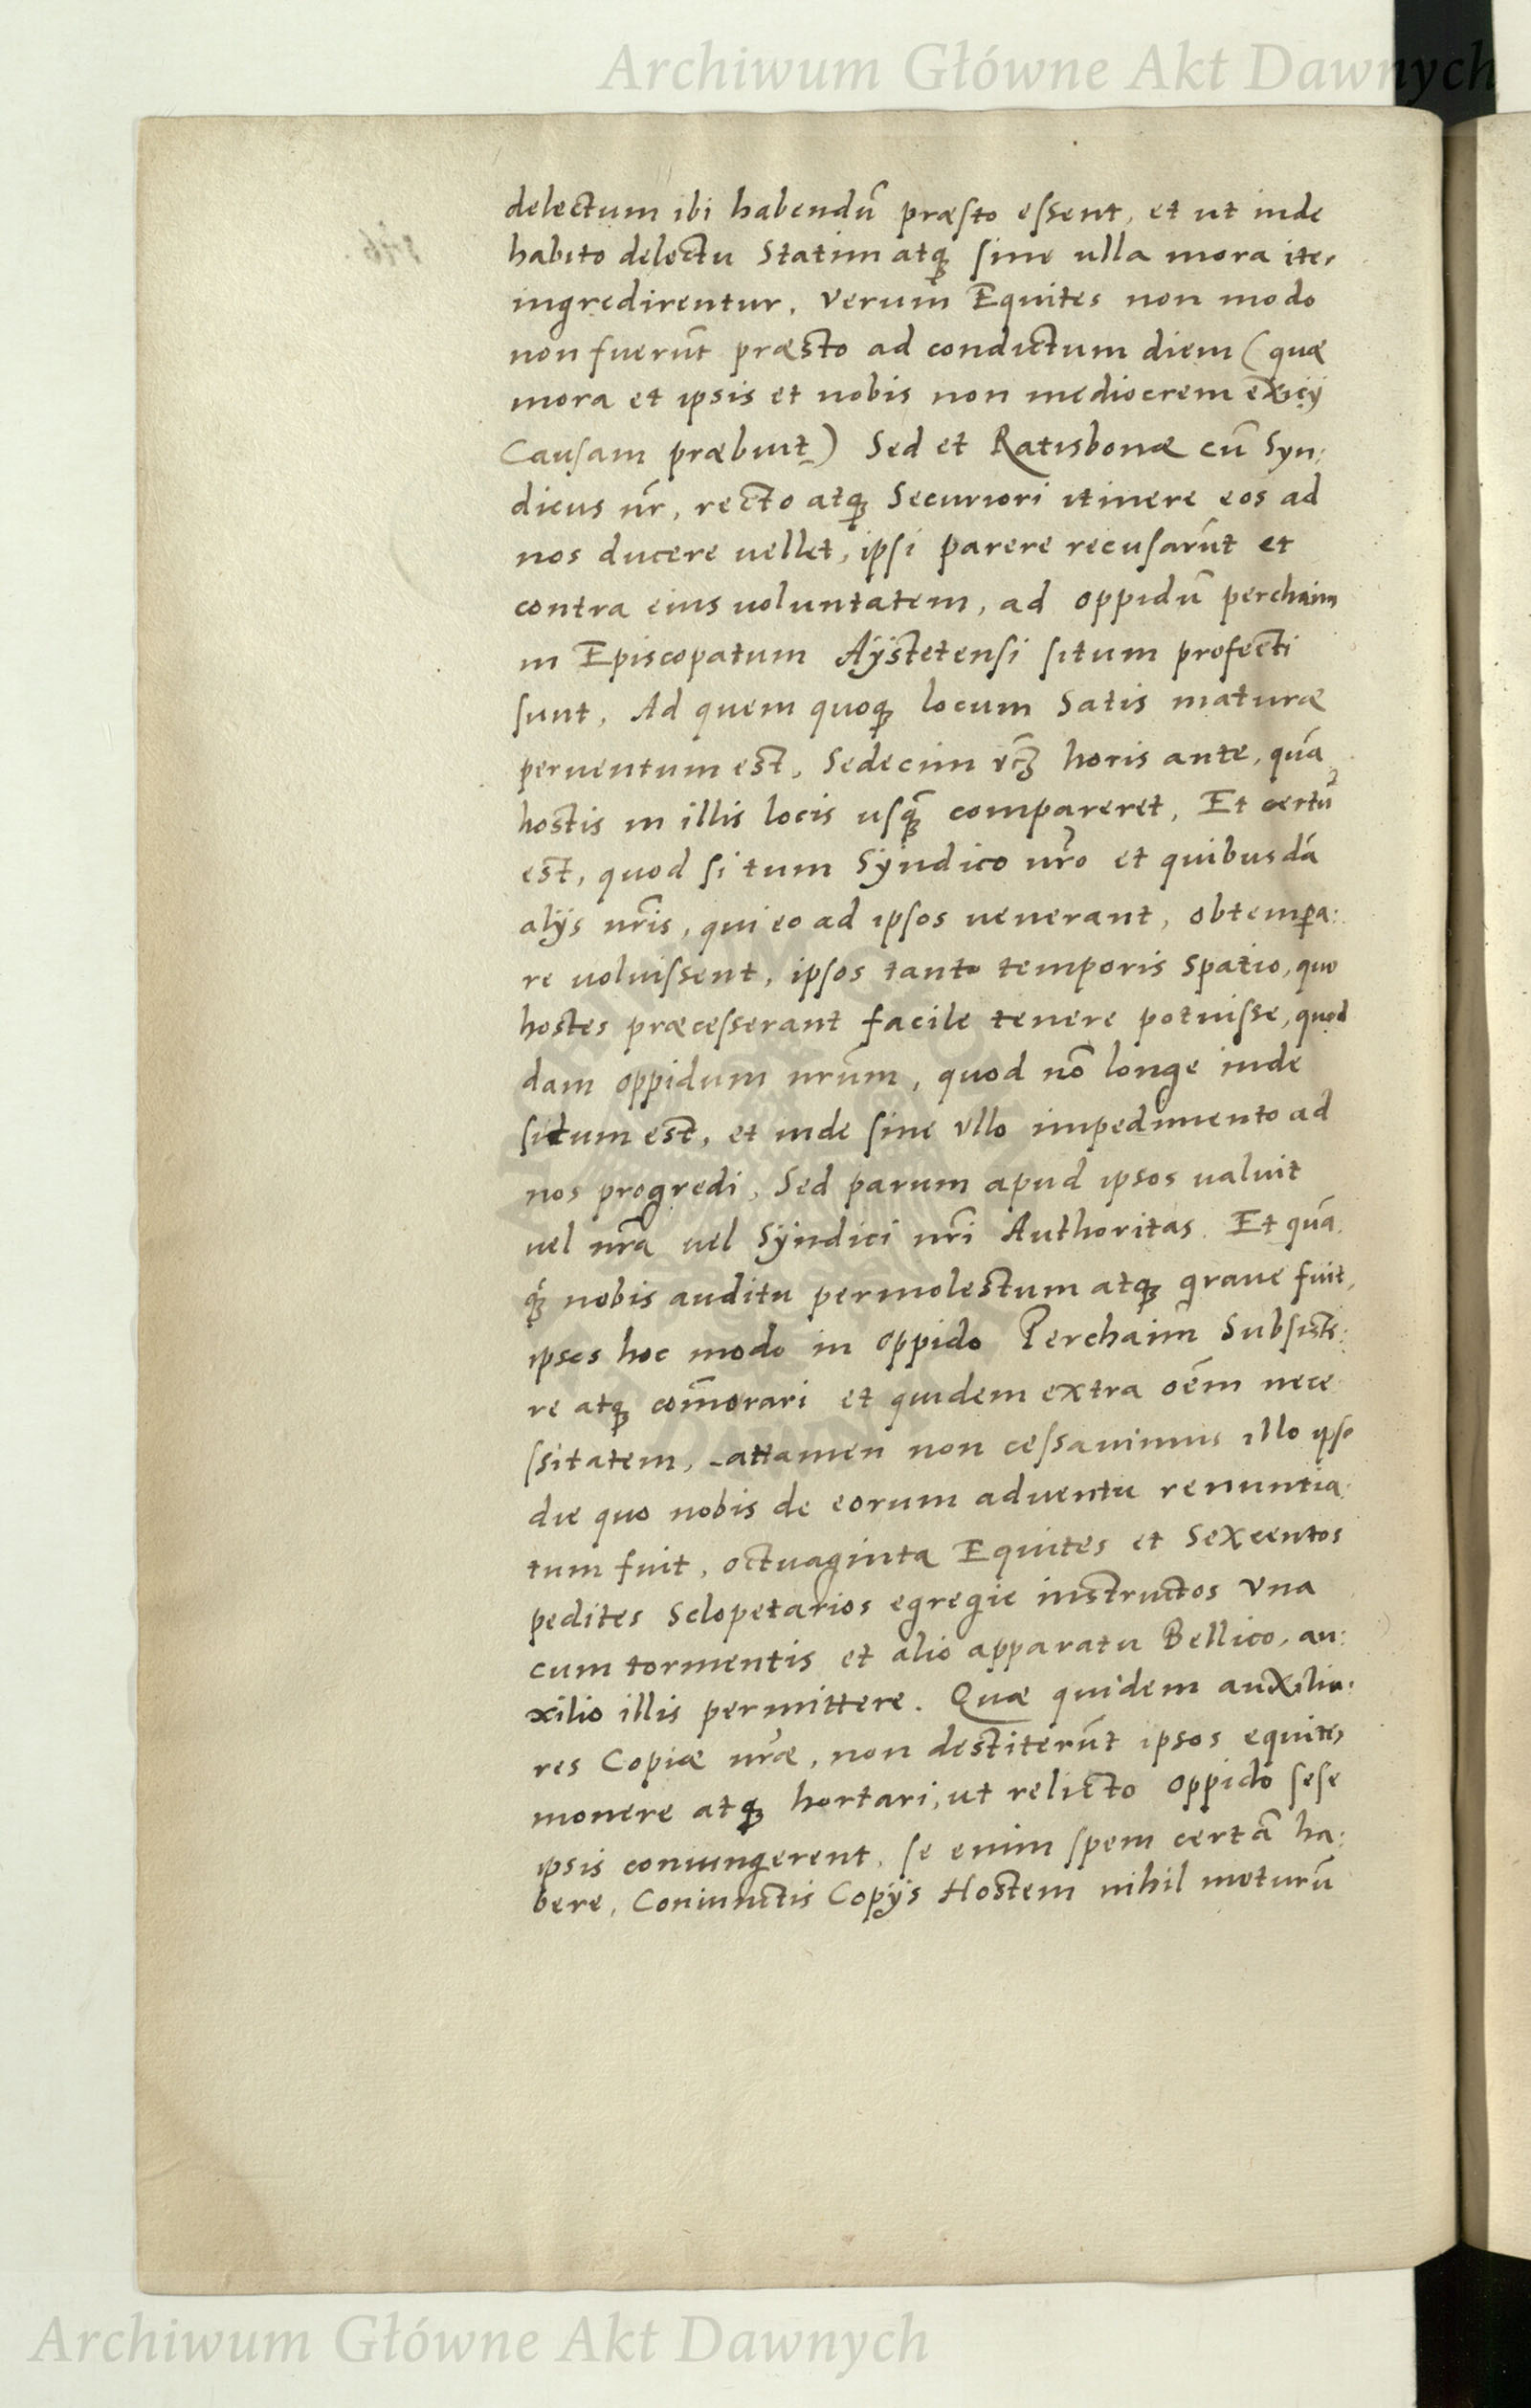 Archiwum Główne Akt Dawnych
delectum ibi habendū præsto essent, et ut inde
habito delectu Statim atq̃ sine ulla mora iter
ingredirentur. Verum Equites non modo
non fuerūt præsto ad condictum diem (quæ
mora et ipsis et nobis non mediocrem exicij
Causam præbuit) Sed et Ratisbonæ cū Syn:
dicus nr̃, recto atq̃ Securiori itinere eos ad
nos ducere vellet, ipsi parere recusarūt et
contra eius voluntatem, ad oppidū perchaim
in Episcopatum Aÿstetensi situm profecti
sunt. Ad quem quoq̃ locum Satis maturæ
perventum est, Sedecim horis ante, quā
hostis in illis locis usq̃ compareret, Et certū
est, quod si tum Sÿndico nr̃o et quibusdā
alijs nr̃is, qui eo ad ipsos venerant, obtempa:
re voluissent, ipsos tanto temporis Spatio, quo
hostes præcesserant facile tenere potuisse, quod
dam oppidum nr̃um, quod nō longe inde
situm est, et inde sine ullo impedimento ad
nos progredi, Sed parum apud ipsos valuit
vel nr̃a vel Sÿndici nr̃i Authoritas. Et quā
q̃ nobis auditu permolestum atq̃ grave fuit,
ipsos hoc modo in oppido Perchaim Subsiste:
re atq̃ com̄orari et quidem extra oēm nece
ssitatem, attamen non cessavimus illo ipso
die quo nobis de eorum adventu renuntia:
tum fuit, octuaginta Equites et Sexcentos
pedites Sclopetarios egregie instructos una
cum tormentis et alio apparatu Bellico, au:
xilio illis permittere. Quæ quidem auxilia:
res Copiæ nr̃æ, non destiterūt ipsos equites
monere atq̃ hortari, ut relicto oppido sese
ipsis coniungerent, se enim spem certā ha:
bere, Coniunctis Copijs Hostem nihil moturū
Archiwum Główne Akt Dawnych